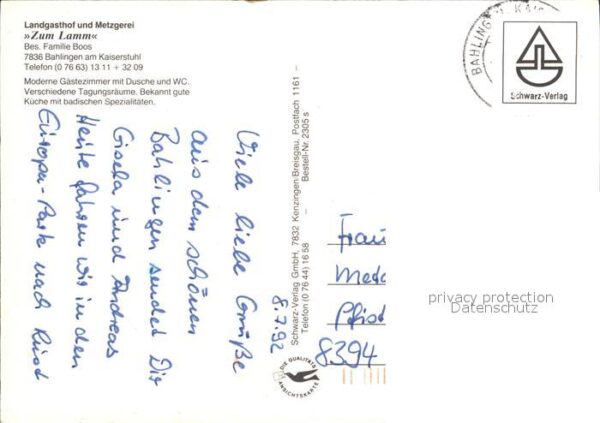 Landgasthof und Metzgerei
»Zum Lamm«
Bes. Familie Boos
7836 Bahlingen am Kaiserstuhl
Telefon (0 76 63) 13 11 + 32 09
Moderne Gästezimmer mit Dusche und WC.
Verschiedene Tagungsräume. Bekannt gute
Küche mit badischen Spezialitäten.
8.7.92
Viele liebe Grüße
aus dem schönen
Bahlingen sendet Dir
Gisela und Andreas
Heute fahren wir in den
Europa-Park nach Rust
Schwarz-Verlag GmbH, 7832 Kenzingen/Breisgau, Postfach 1161 –
Telefon (0 76 44) 16 58 – Bestell-Nr. 2305 s
DIE QUALITÄTS
ANSICHTSKARTE
BAHLINGEN
Schwarz-Verlag
Frau
Pfist
8394
privacy protection
Datenschutz